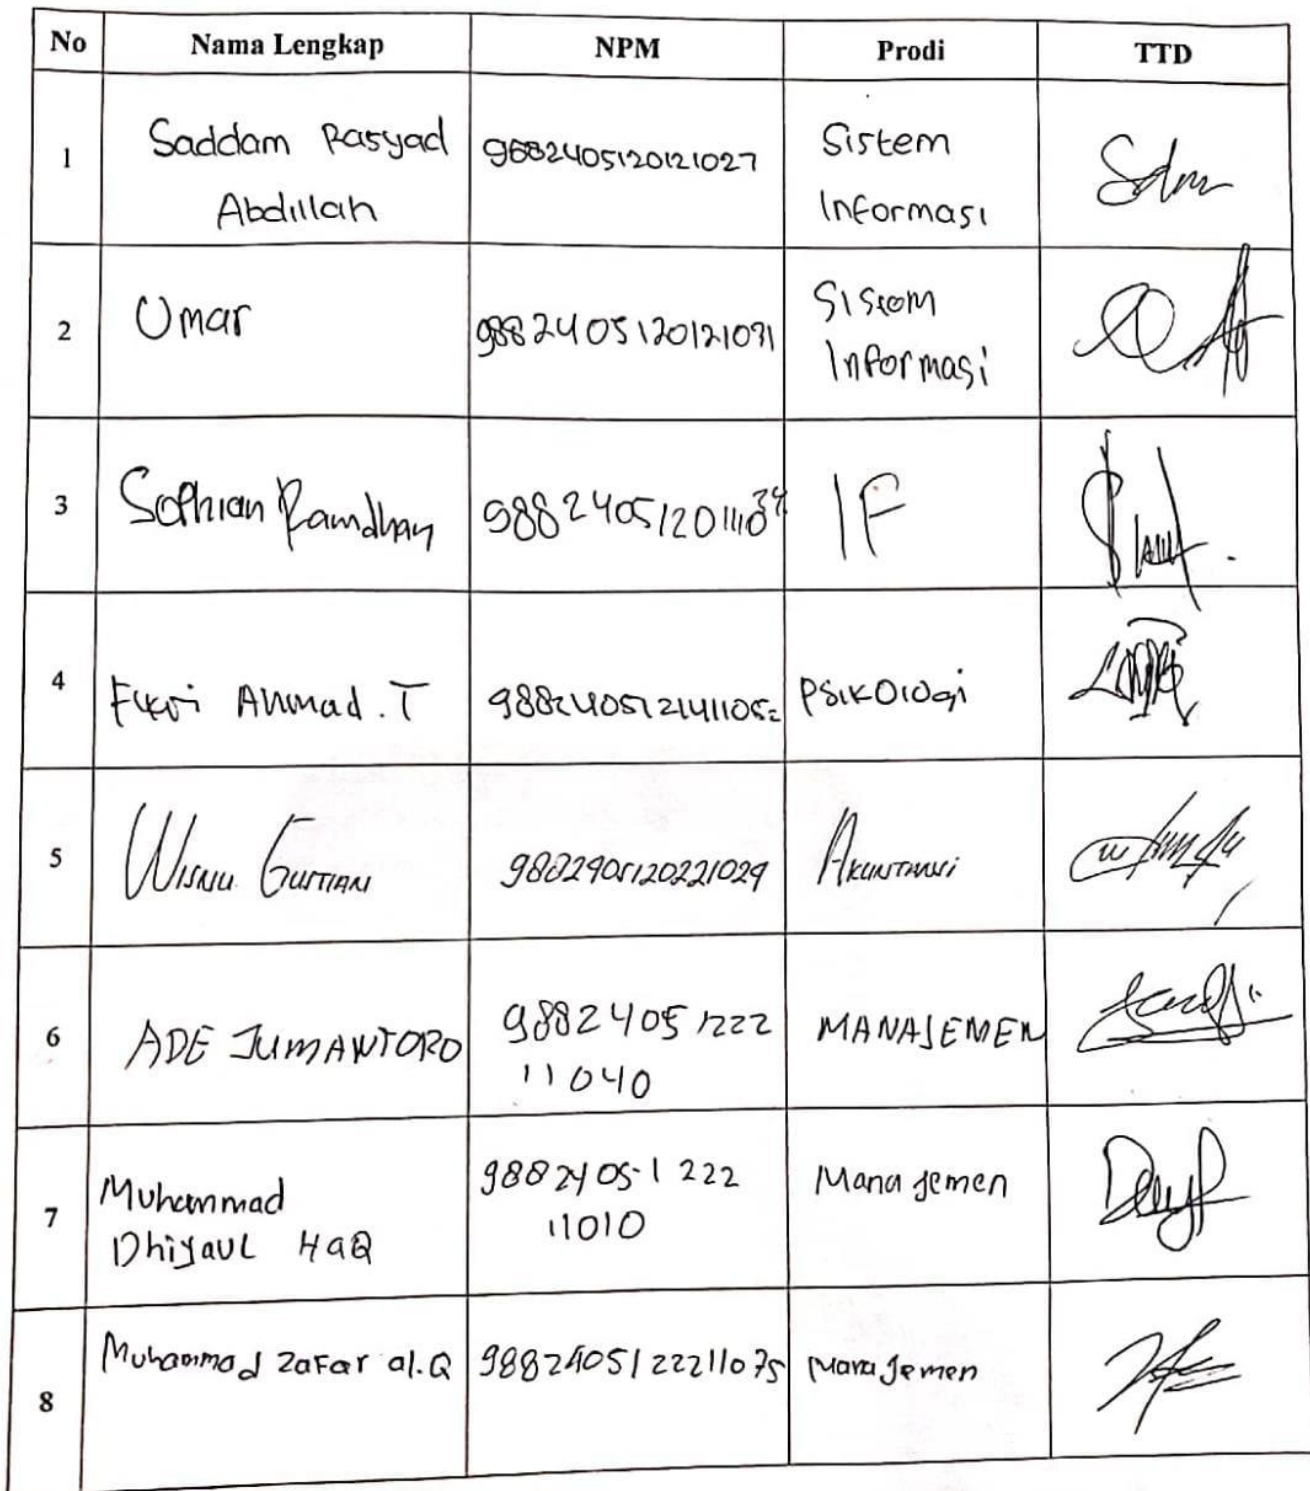 No Nama Lengkap NPM Prodi TTD
1 Saddam Rasyad Abdillah 9882405120121027 Sistem Informasi
2 Umar 9882405120121031 Sistem Informasi
3 Sophian Ramdhan 9882405120111034 IF
4 Fikri Ahmad.T 9882405121411052 Psikologi
5 Wisnu Gustiani 9882405120221029 Akuntansi
6 ADE JUMANTORO 98824051222 11040 MANAJEMEN
7 Muhammad Dhiyaul HaQ 98824051222 11010 Manajemen
8 Muhammad Zafar al.Q 9882405122211075 Manajemen